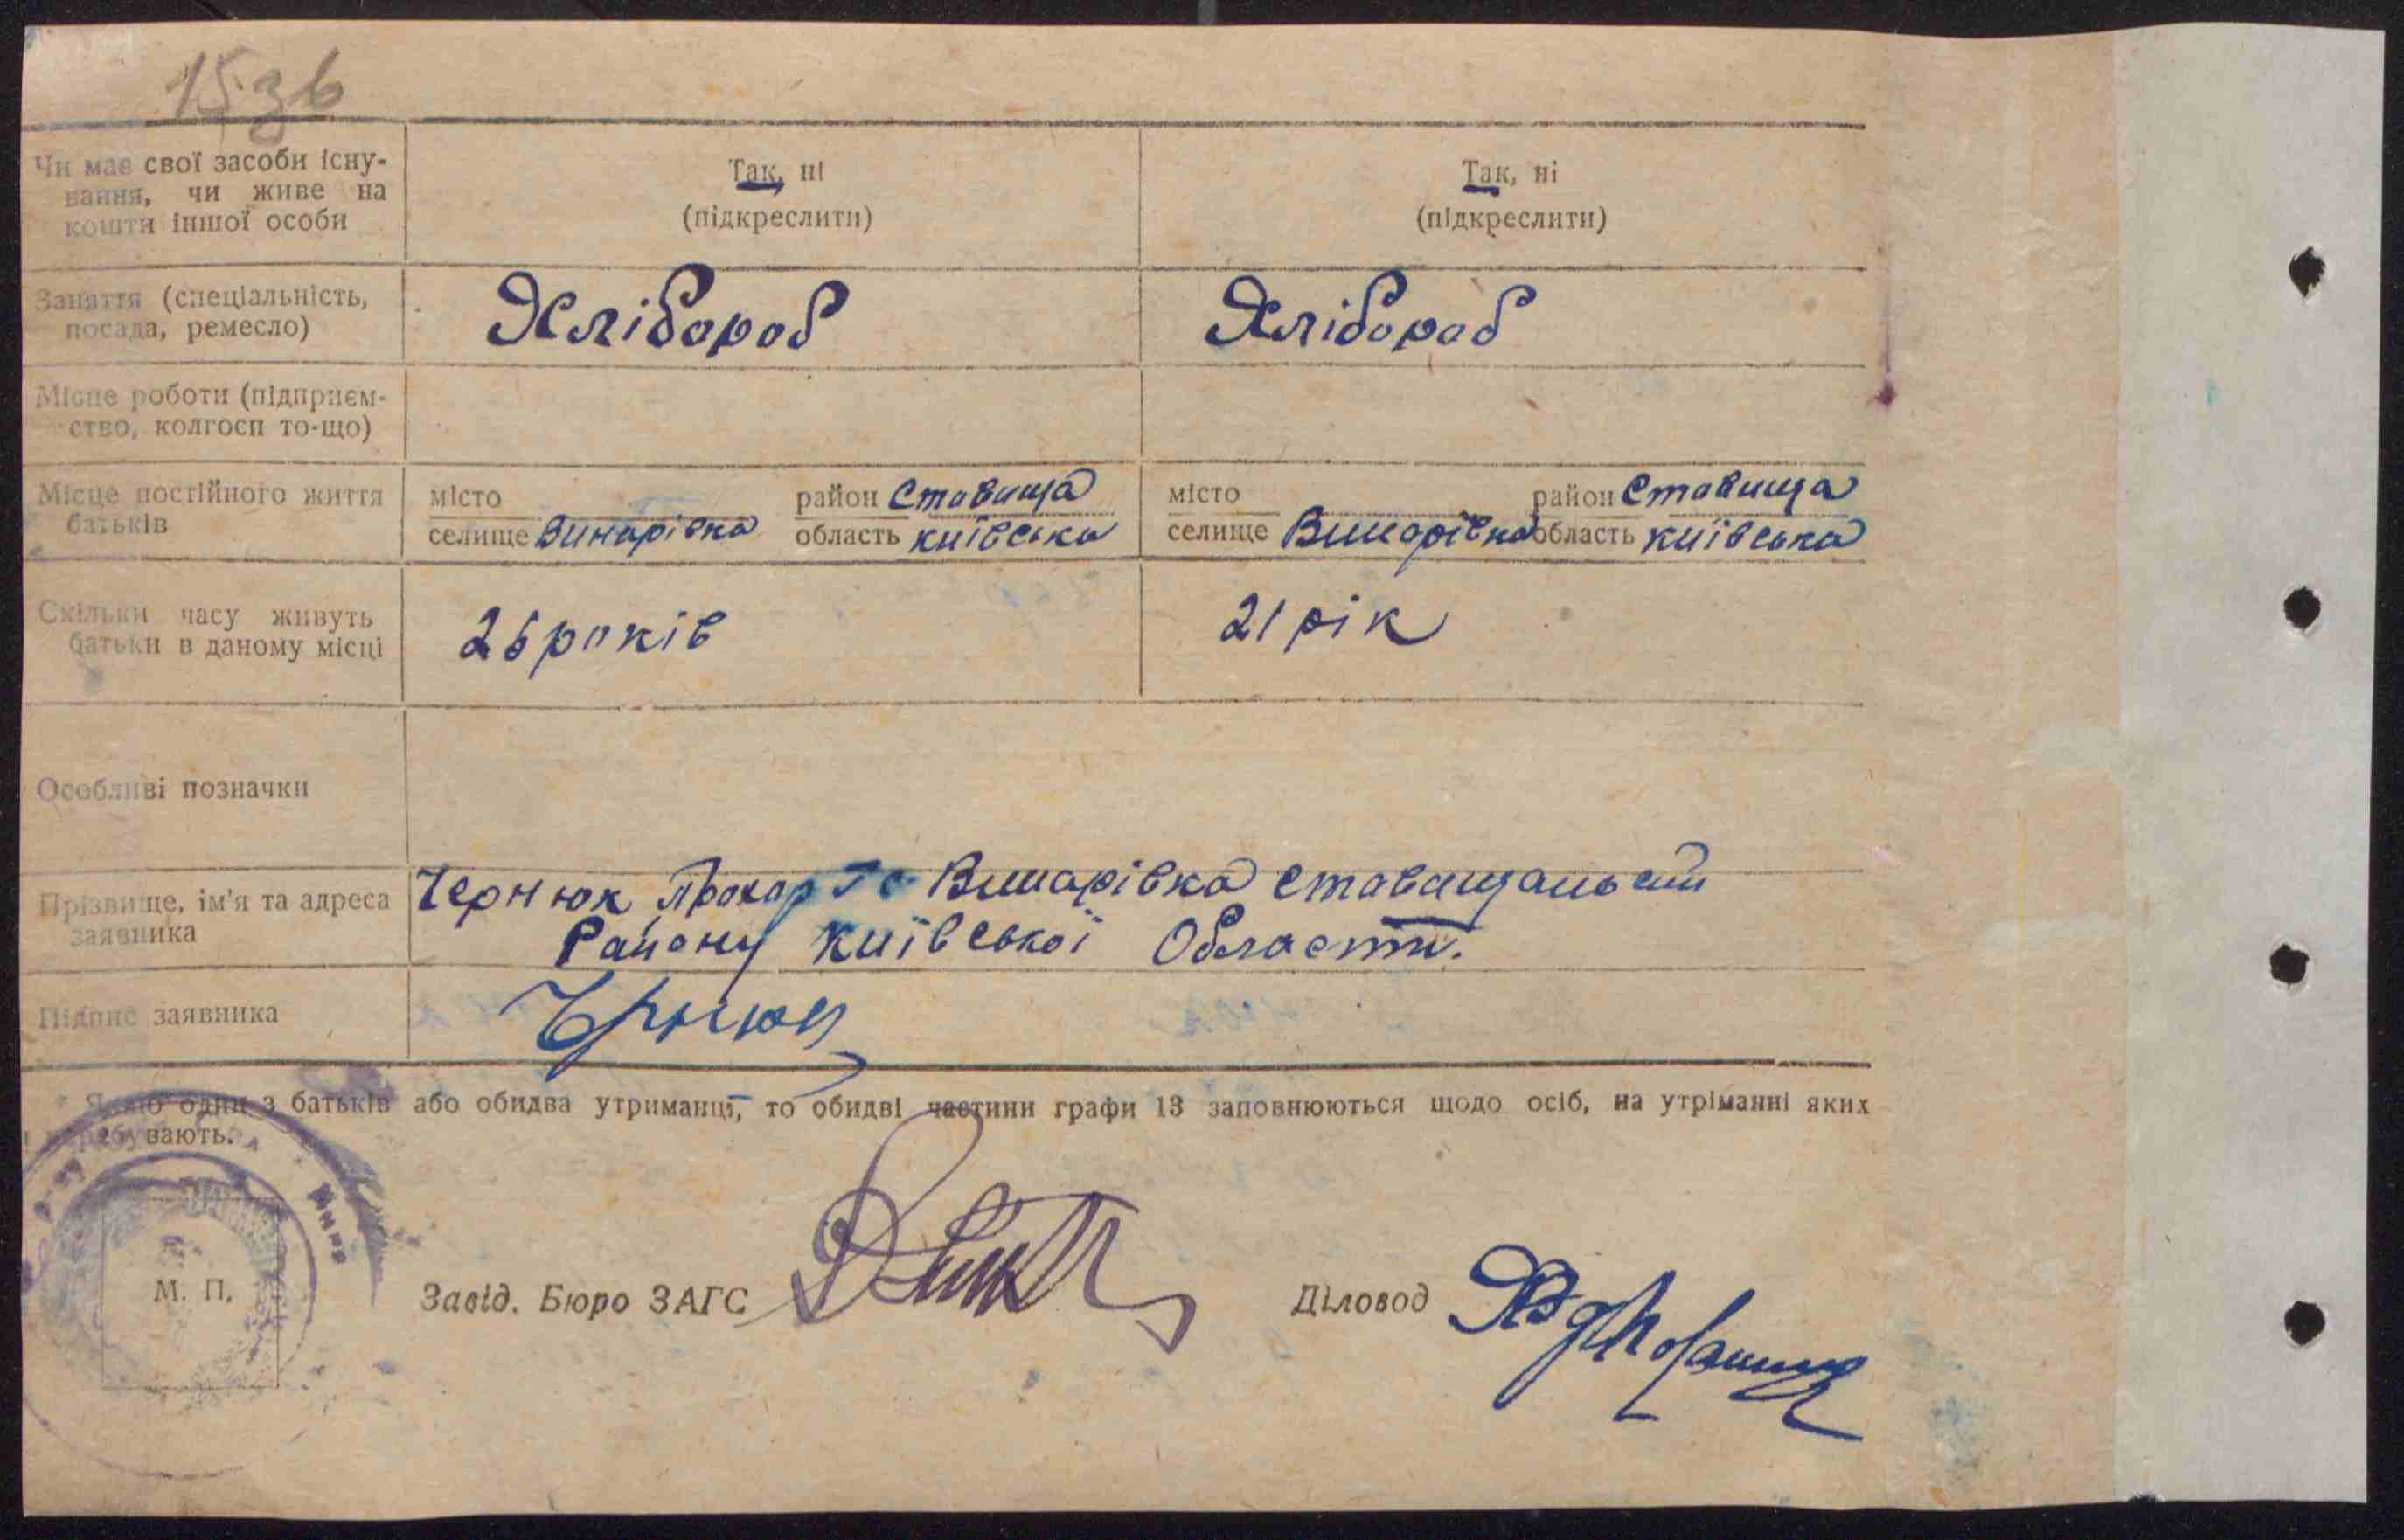 15зв
Чи має свої засоби існу-
вання, чи живе на
кошти іншої особи
Так, ні
(підкреслити)
Так, ні
(підкреслити)
Заняття (спеціальність,
посада, ремесло)
Хлібороб
Хлібороб
Місце роботи (підприєм-
ство, колгосп то-що)
Місце постійного життя
батьків
місто
район Ставища
селище Винарівка
область київська
місто
район Ставища
селище Винарівка
область київська
Скільки часу живуть
батьки в даному місці
26 років
21 рік
Особливі позначки
Прізвище, ім'я та адреса
заявника
Чернюк Прохар Т с. Винарівка Ставищаньский
Району київської Области.
Підпис заявника
Чернюк
* Якщо один з батьків або обидва утриманці, то обидві частини графи 13 заповнюються щодо осіб, на утріманні яких
перебувають.
М. П.
Завід. Бюро ЗАГС
Діловод